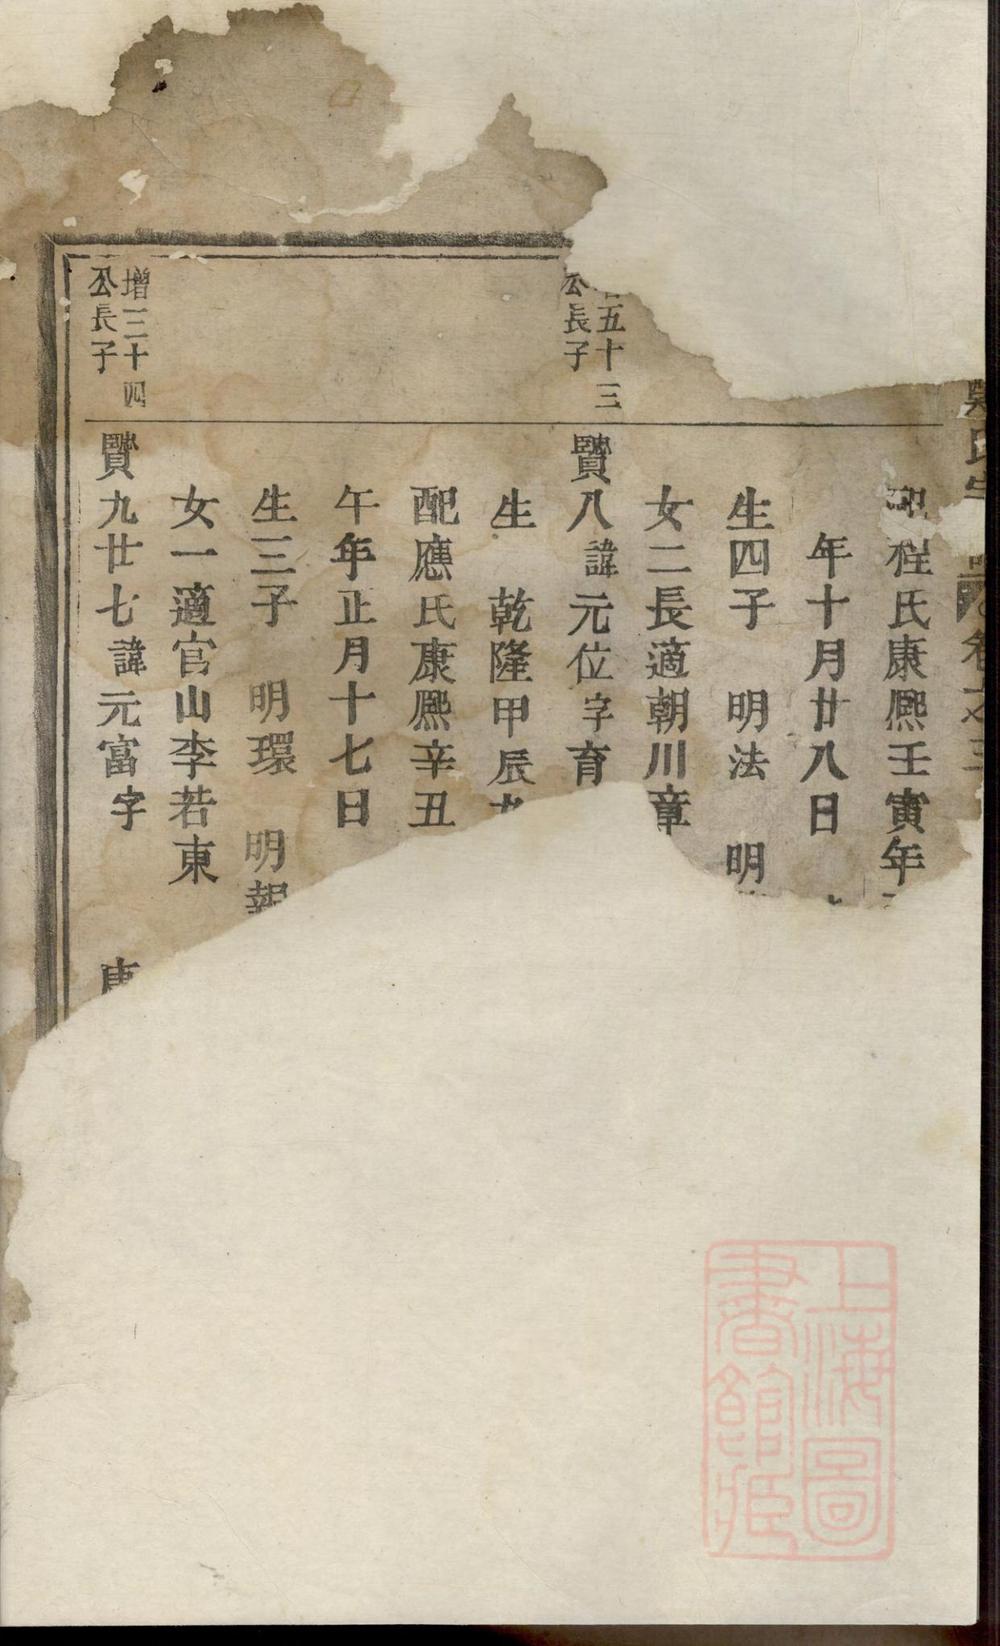 吳氏宗譜 卷之三
配程氏康熙壬寅年
年十月廿八日
生四子 明法 明
女二長適朝川章
五十三
公長子
贒八諱元位字育
生 乾隆甲辰
配應氏康熙辛丑
午年正月十七日
生三子 明環 明報
女一適官山李若東
增三十四
公長子
贒九廿七諱元富字 康
上海圖
書館藏